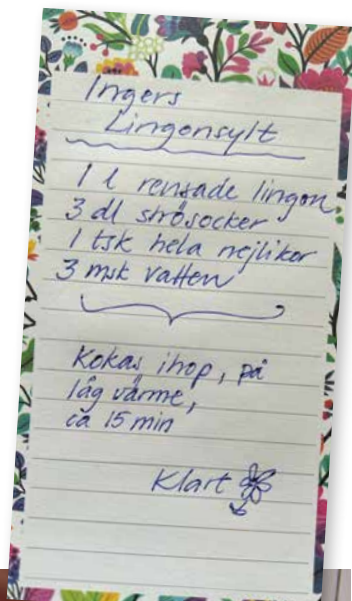 Ingers
Lingonsylt
1 l rensade lingon
3 dl strösocker
1 tsk hela nejlikor
3 msk vatten
Kokas ihop, på
låg värme,
ca 15 min
Klart